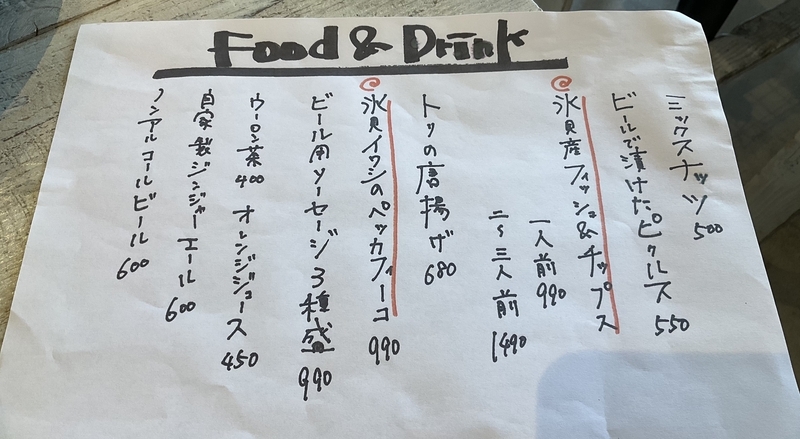 Food & Drink
ミックスナッツ 500
ビールで漬けたピクルス 550
氷見産フィッシュ&チップス
一人前 990
二〜三人前 1490
トリの唐揚げ 680
氷見イワシのベッカフィーコ 990
ビール用ソーセージ3種盛 990
ウーロン茶 400 オレンジジュース 450
自家製ジンジャーエール 600
ノンアルコールビール 600